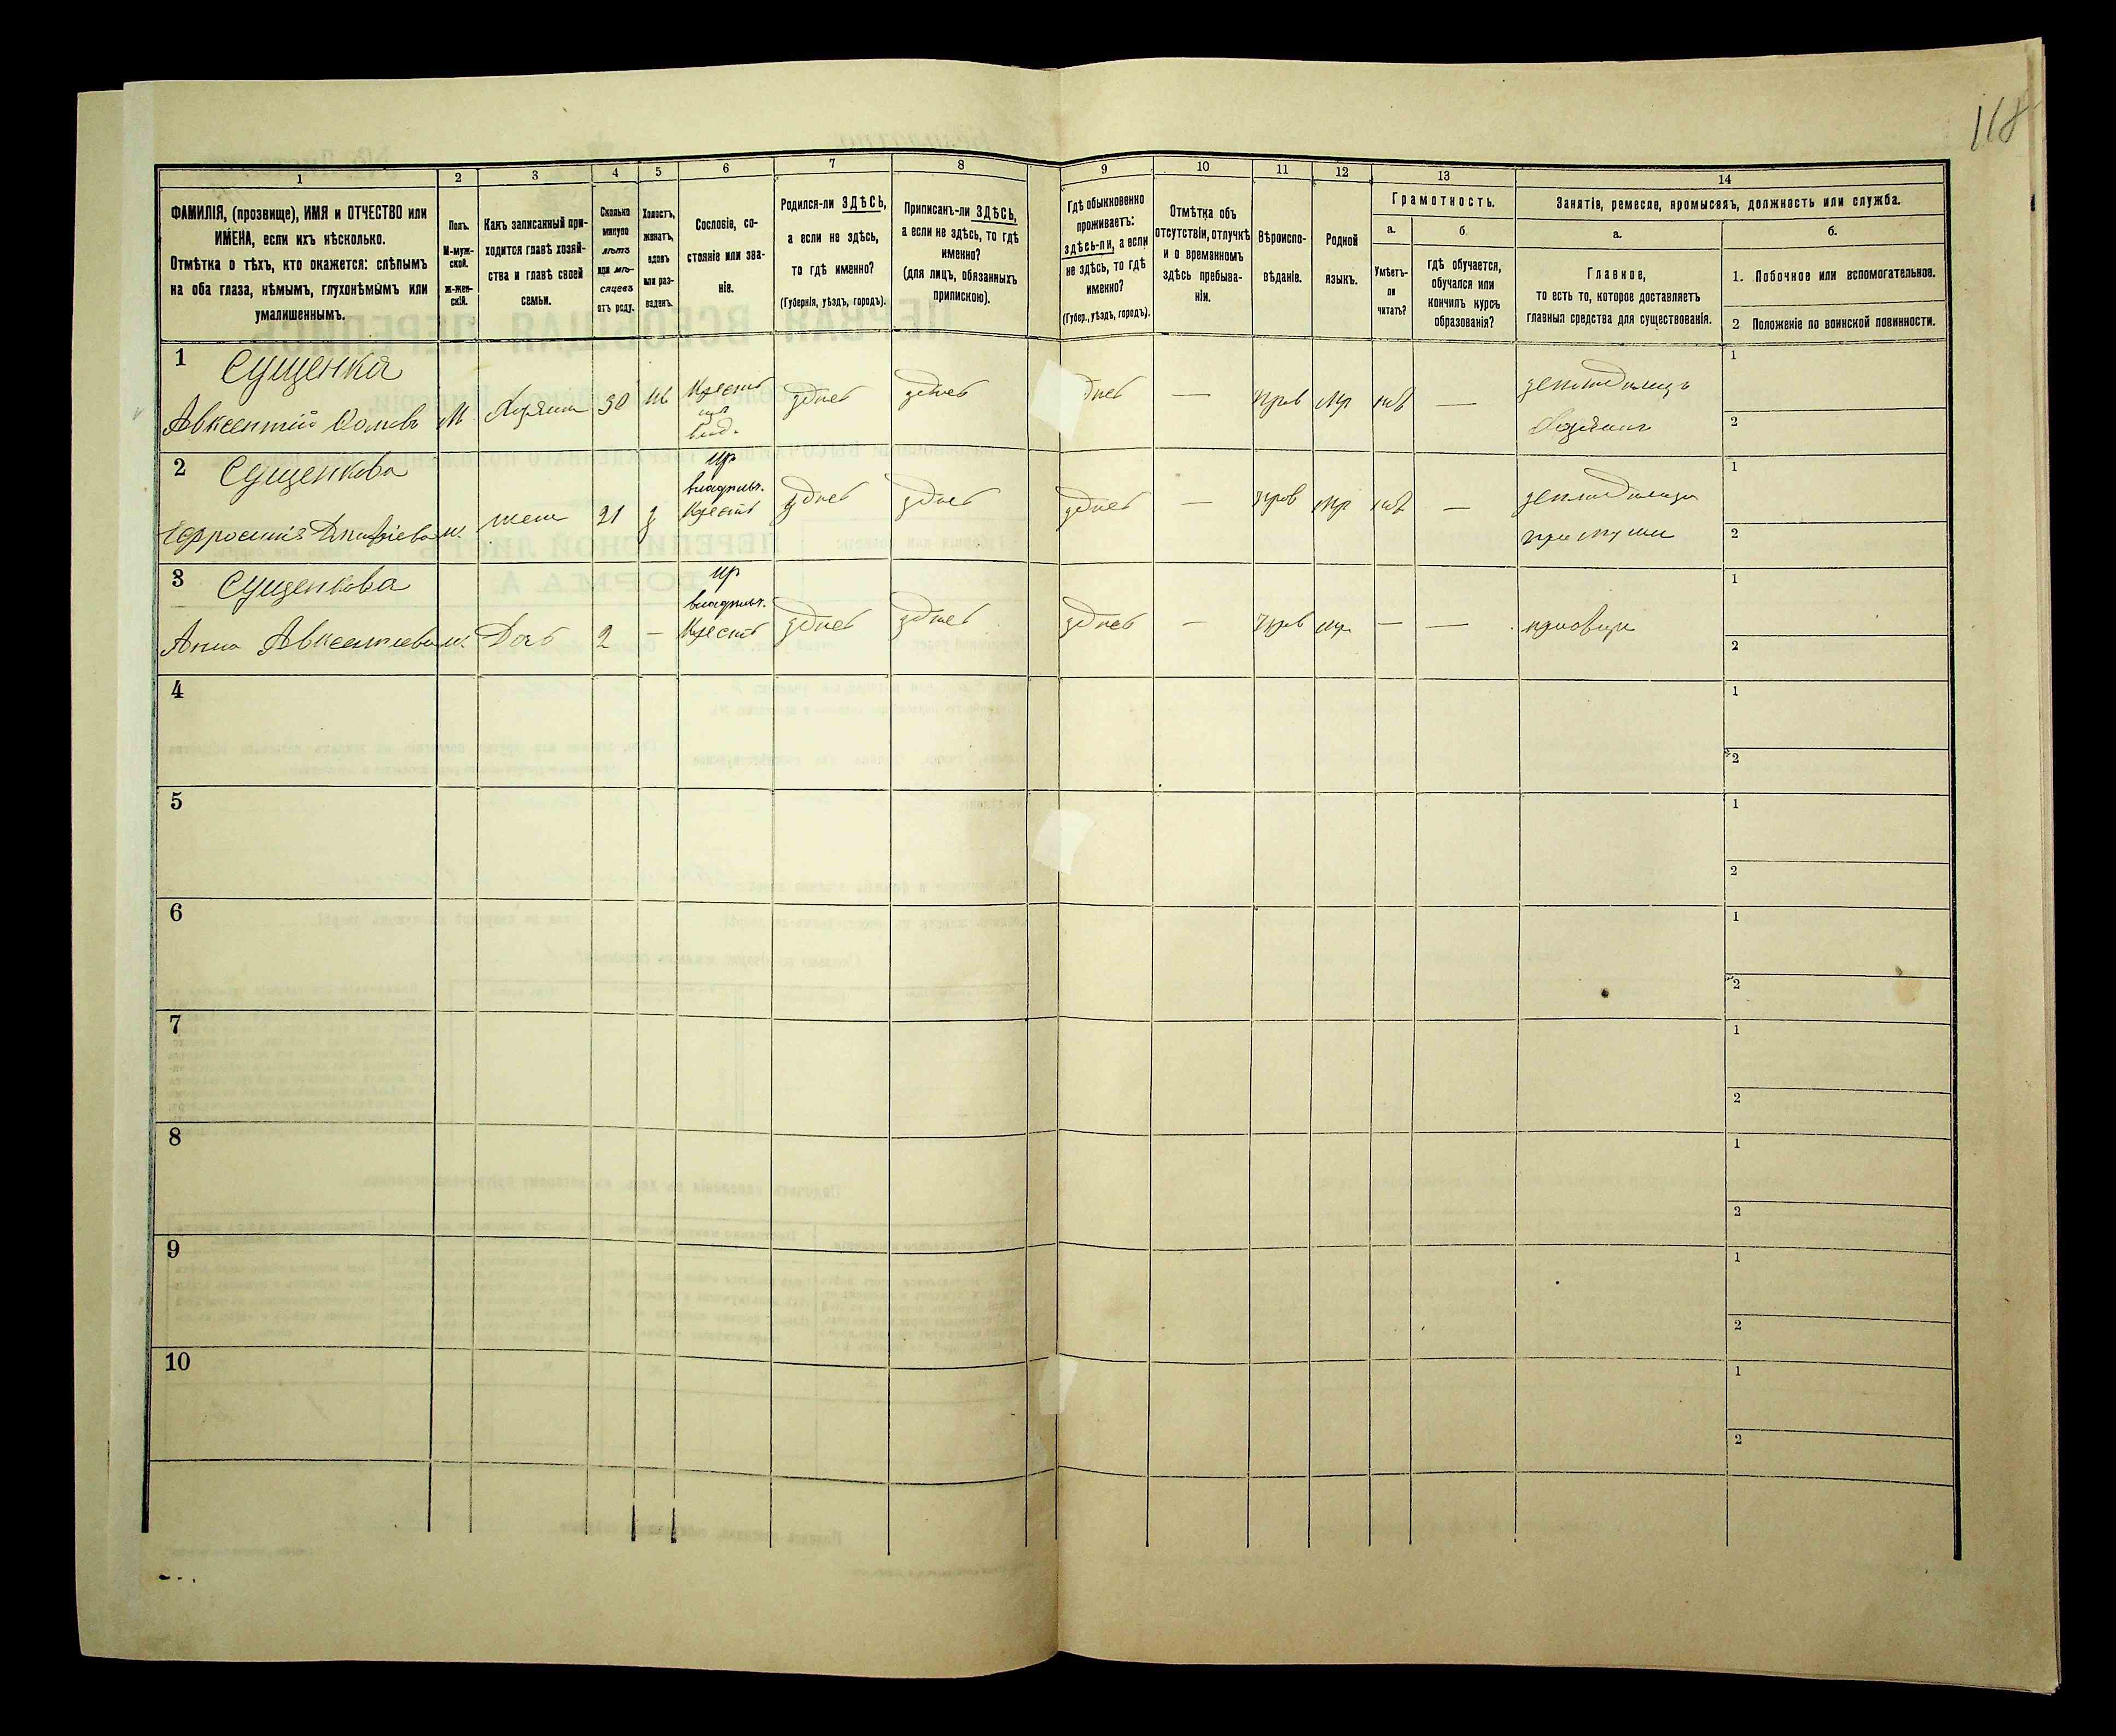 118
1
2
3
4
5
6
7
8
9
10
11
12
13
14
ФАМИЛІЯ, (прозвище), ИМЯ и ОТЧЕСТВО или
ИМЕНА, если ихъ нѣсколько.
Отмѣтка о тѣхъ, кто окажется: слѣпымъ
на оба глаза, нѣмымъ, глухонѣмымъ или
умалишеннымъ.
Полъ.
М-муж-
ской.
Ж-жен-
скій.
Какъ записанный при-
ходится главѣ хозяй-
ства и главѣ своей
семьи.
Сколько
минуло
лѣтъ
или мѣ-
сяцевъ
отъ роду.
Холостъ,
женатъ,
вдовъ
или раз-
веденъ.
Сословіе, со-
стояніе или зва-
ніе.
Родился-ли ЗДѢСЬ,
а если не здѣсь,
то гдѣ именно?
(Губернія, уѣздъ, городъ).
Приписанъ-ли ЗДѢСЬ,
а если не здѣсь, то гдѣ
именно?
(для лицъ, обязанныхъ
припискою).
Гдѣ обыкновенно
проживаетъ:
здѣсь-ли, а если
не здѣсь, то гдѣ
именно?
(Губер., уѣздъ, городъ).
Отмѣтка объ
отсутствіи, отлучкѣ
и о временномъ
здѣсь пребыва-
ніи.
Вѣроиспо-
вѣданіе.
Родной
языкъ.
Грамотность.
а.
Умѣетъ-
ли
читать?
б.
Гдѣ обучается,
обучался или
кончилъ курсъ
образованія?
Занятіе, ремесло, промыселъ, должность или служба.
а.
Главное,
то есть то, которое доставляетъ
главныя средства для существованія.
б.
1. Побочное или вспомогательное.
2 Положеніе по воинской повинности.
1
Сущенка
Авксентій
М
Хозяинъ
30
Крестъ
изъ
здѣсь
здѣсь
—
Прав
Мр
—
земледѣлецъ
Хозяинъ
1
2
2
Сущенкова
жена
21
Крестъ
здѣсь
здѣсь
здѣсь
—
Прав
Мр
—
1
2
3
Сущенкова
Анна Авксентіева
Дочь
2
—
Крестъ
здѣсь
здѣсь
здѣсь
—
Прав
Мр
—
—
1
2
4
1
2
5
1
2
6
1
2
7
1
2
8
1
2
9
1
2
10
1
2